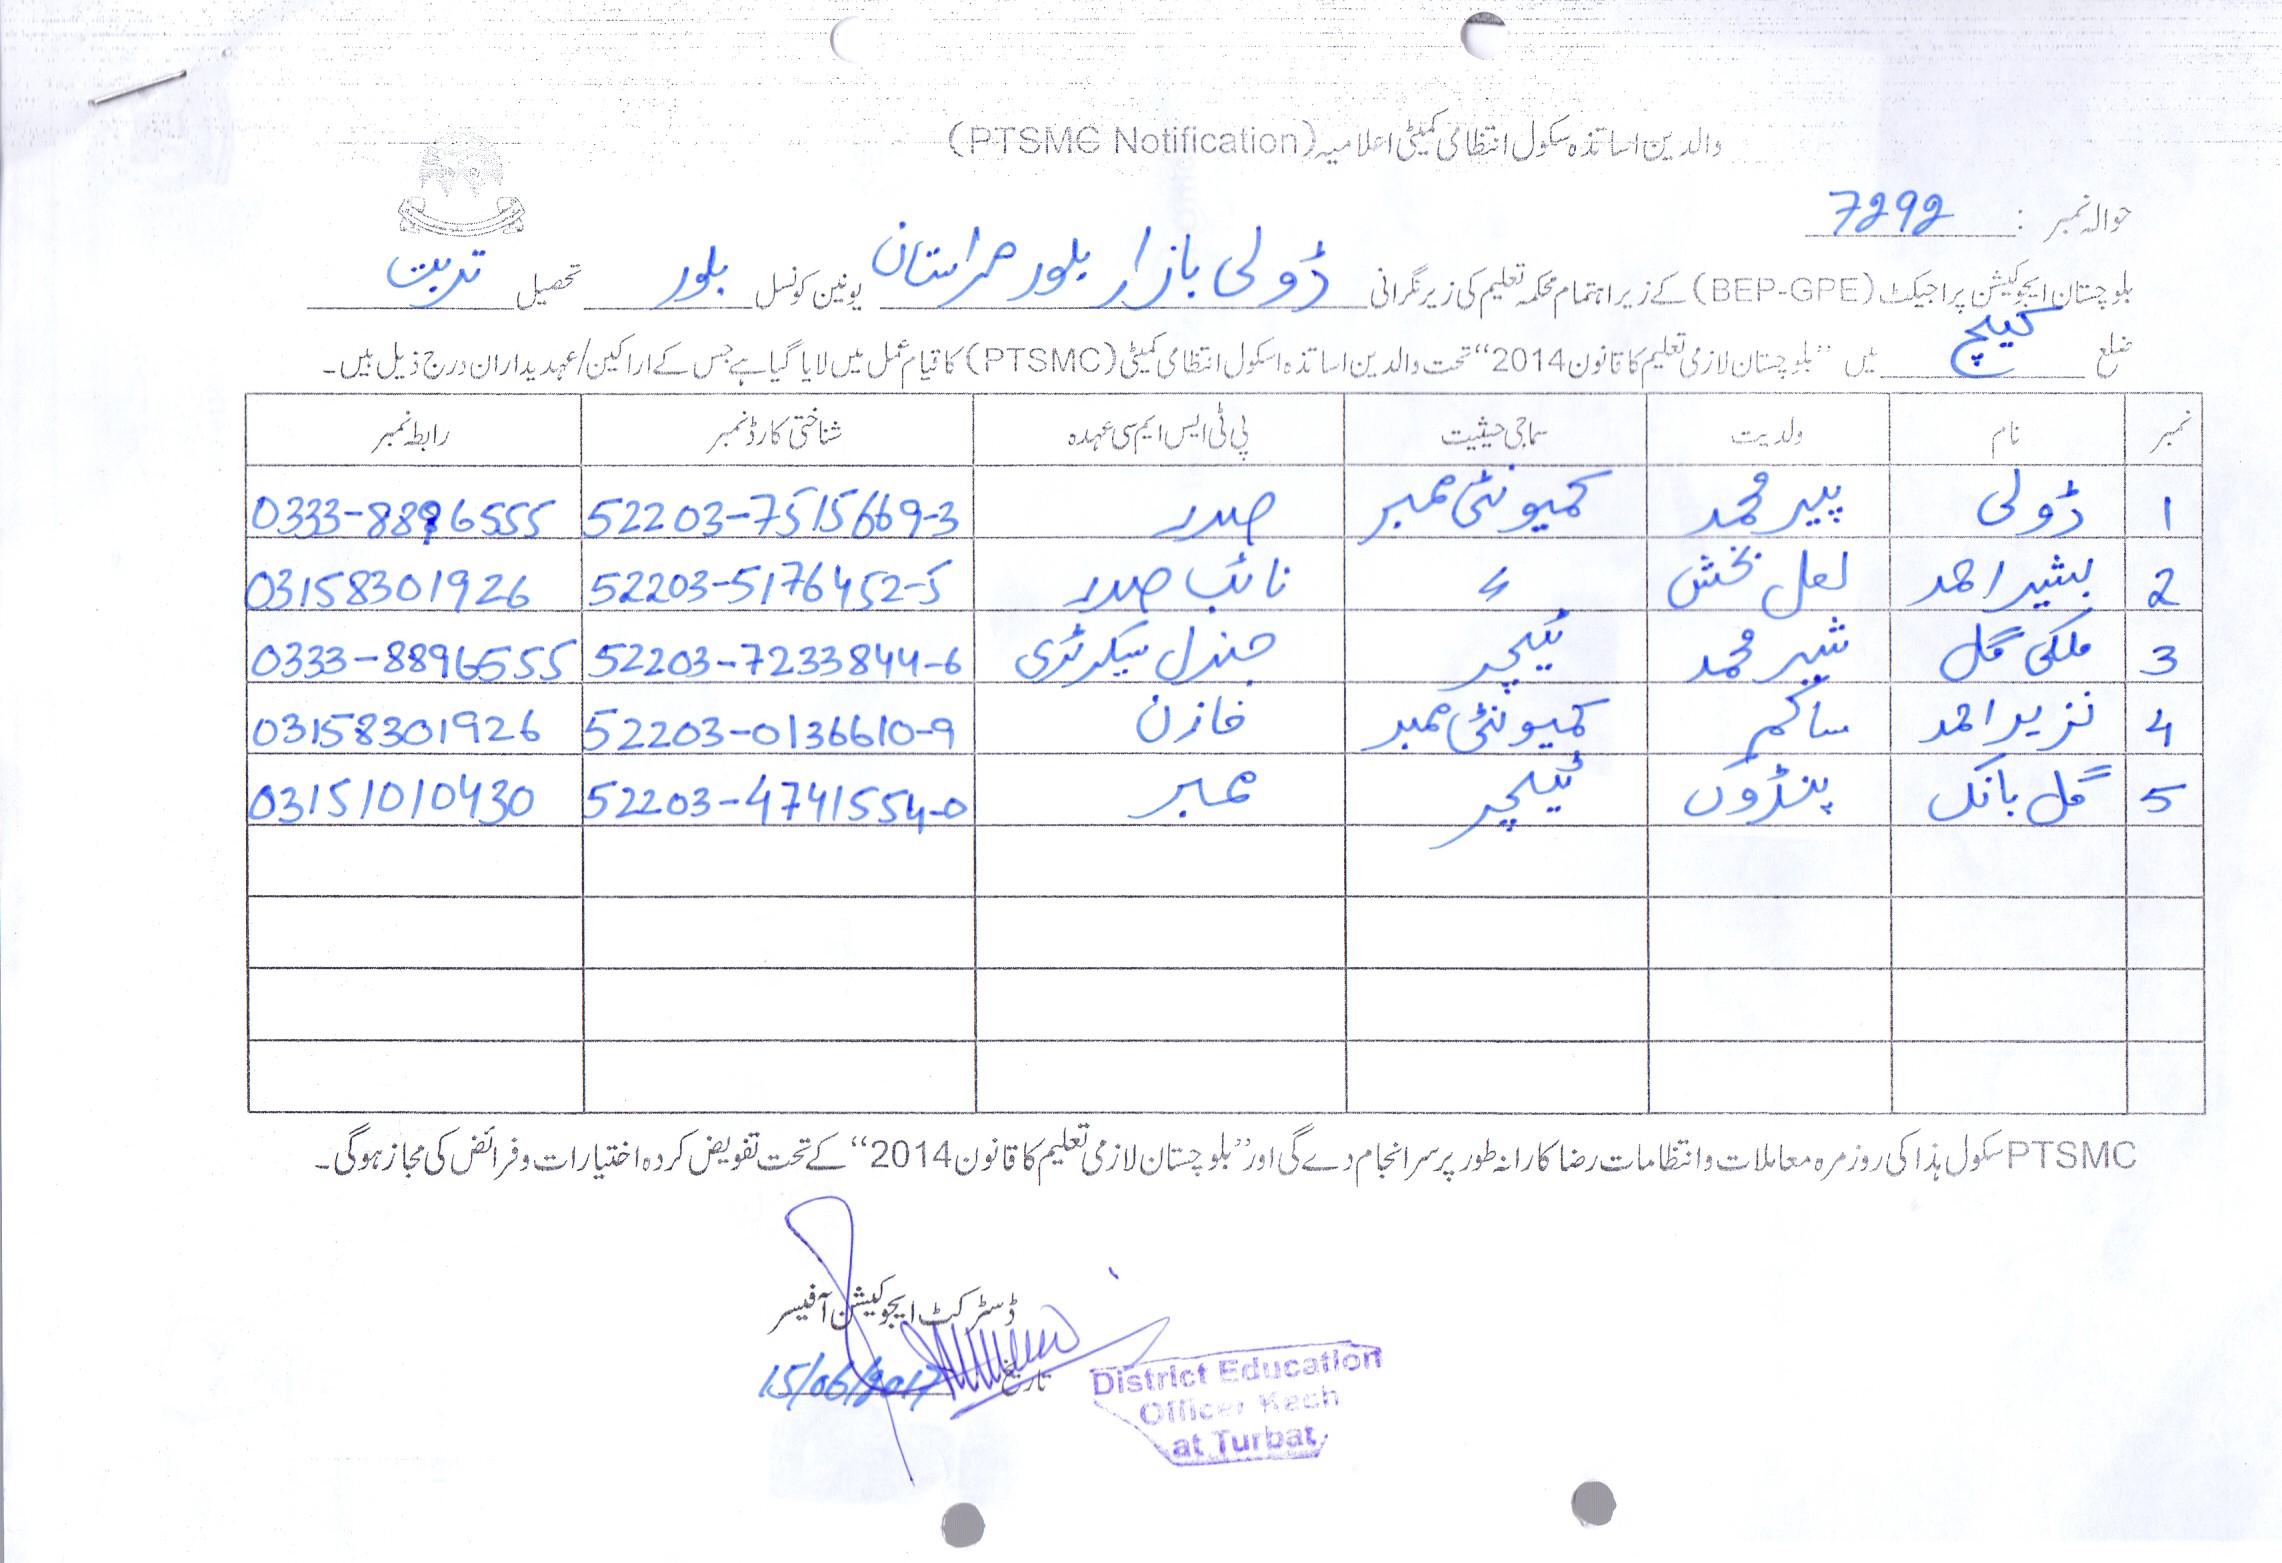 والدین اساتذہ سکول انتظامی کمیٹی اعلامیہ (PTSMC Notification)
حوالہ نمبر : 7292
بلوچستان ایجوکیشن پراجیکٹ (BEP-GPE) کے زیر اہتمام محکمہ تعلیم کی زیر نگرانی ڈولی بازار بلور یونین کونسل بلور تحصیل تربت
ضلع کیچ میں "بلوچستان لازمی تعلیم کا قانون 2014" تحت والدین اساتذہ اسکول انتظامی کمیٹی (PTSMC) کا قیام عمل میں لایا گیا ہے جس کے اراکین/عہدیداران درج ذیل ہیں۔
نمبر نام ولدیت سماجی حیثیت پی ٹی ایس ایم سی عہدہ شناختی کارڈ نمبر رابطہ نمبر
1 ڈولی پیر محمد کمیونٹی ممبر صدر 52203-7515669-3 0333-8896555
2 بشیر احمد لعل بخش 〃 نائب صدر 52203-5176452-5 03158301926
3 ملکی گل شیر محمد ٹیچر جنرل سیکرٹری 52203-7233844-6 0333-8896555
4 نزیر احمد ساکم کمیونٹی ممبر خازن 52203-0136610-9 03158301926
5 گل بانک پنڈوک ٹیچر ممبر 52203-4741554-0 03151010430
PTSMC سکول ہذا کی روزمرہ معاملات و انتظامات رضا کارانہ طور پر سر انجام دے گی اور "بلوچستان لازمی تعلیم کا قانون 2014" کے تحت تفویض کردہ اختیارات و فرائض کی مجاز ہو گی۔
ڈسٹرکٹ ایجوکیشن آفیسر
تاریخ 15/06/2017
District Education
Officer Kech
at Turbat